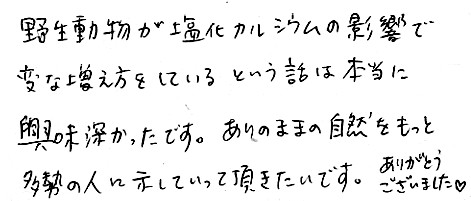 野生動物が塩化カルシウムの影響で
変な増え方をしている という話は本当に
興味深かったです。ありのままの自然をもっと
多勢の人に示していって頂きたいです。 ありがとう
ございました♡